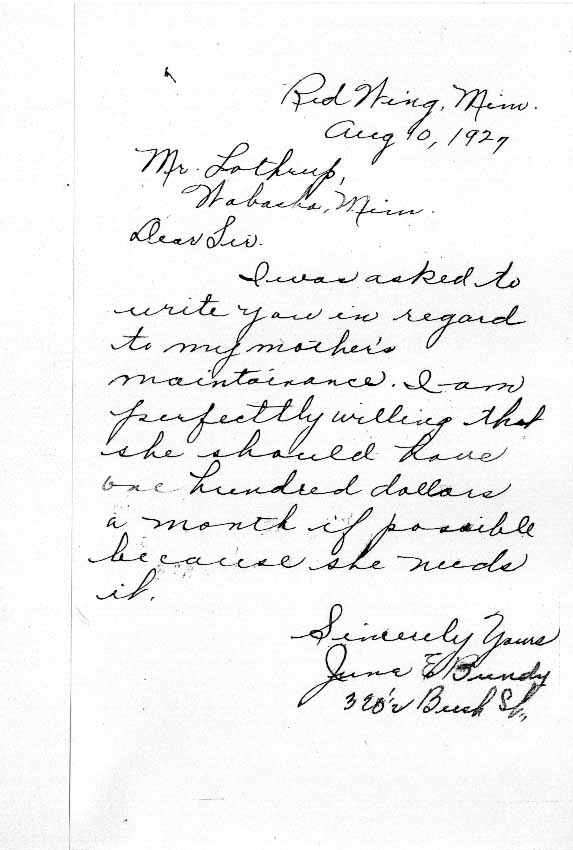 Red Wing, Minn.
Aug 10, 1927
Mr. Lothrup,
Wabasha, Minn.
Dear Sir.
I was asked to
write you in regard
to my mother's
maintainance. I am
perfecttly willing that
she should have
one hundred dollars
a month if possible
because she needs
it.
Sincerely Yours
June E Bundy
Bush St.,